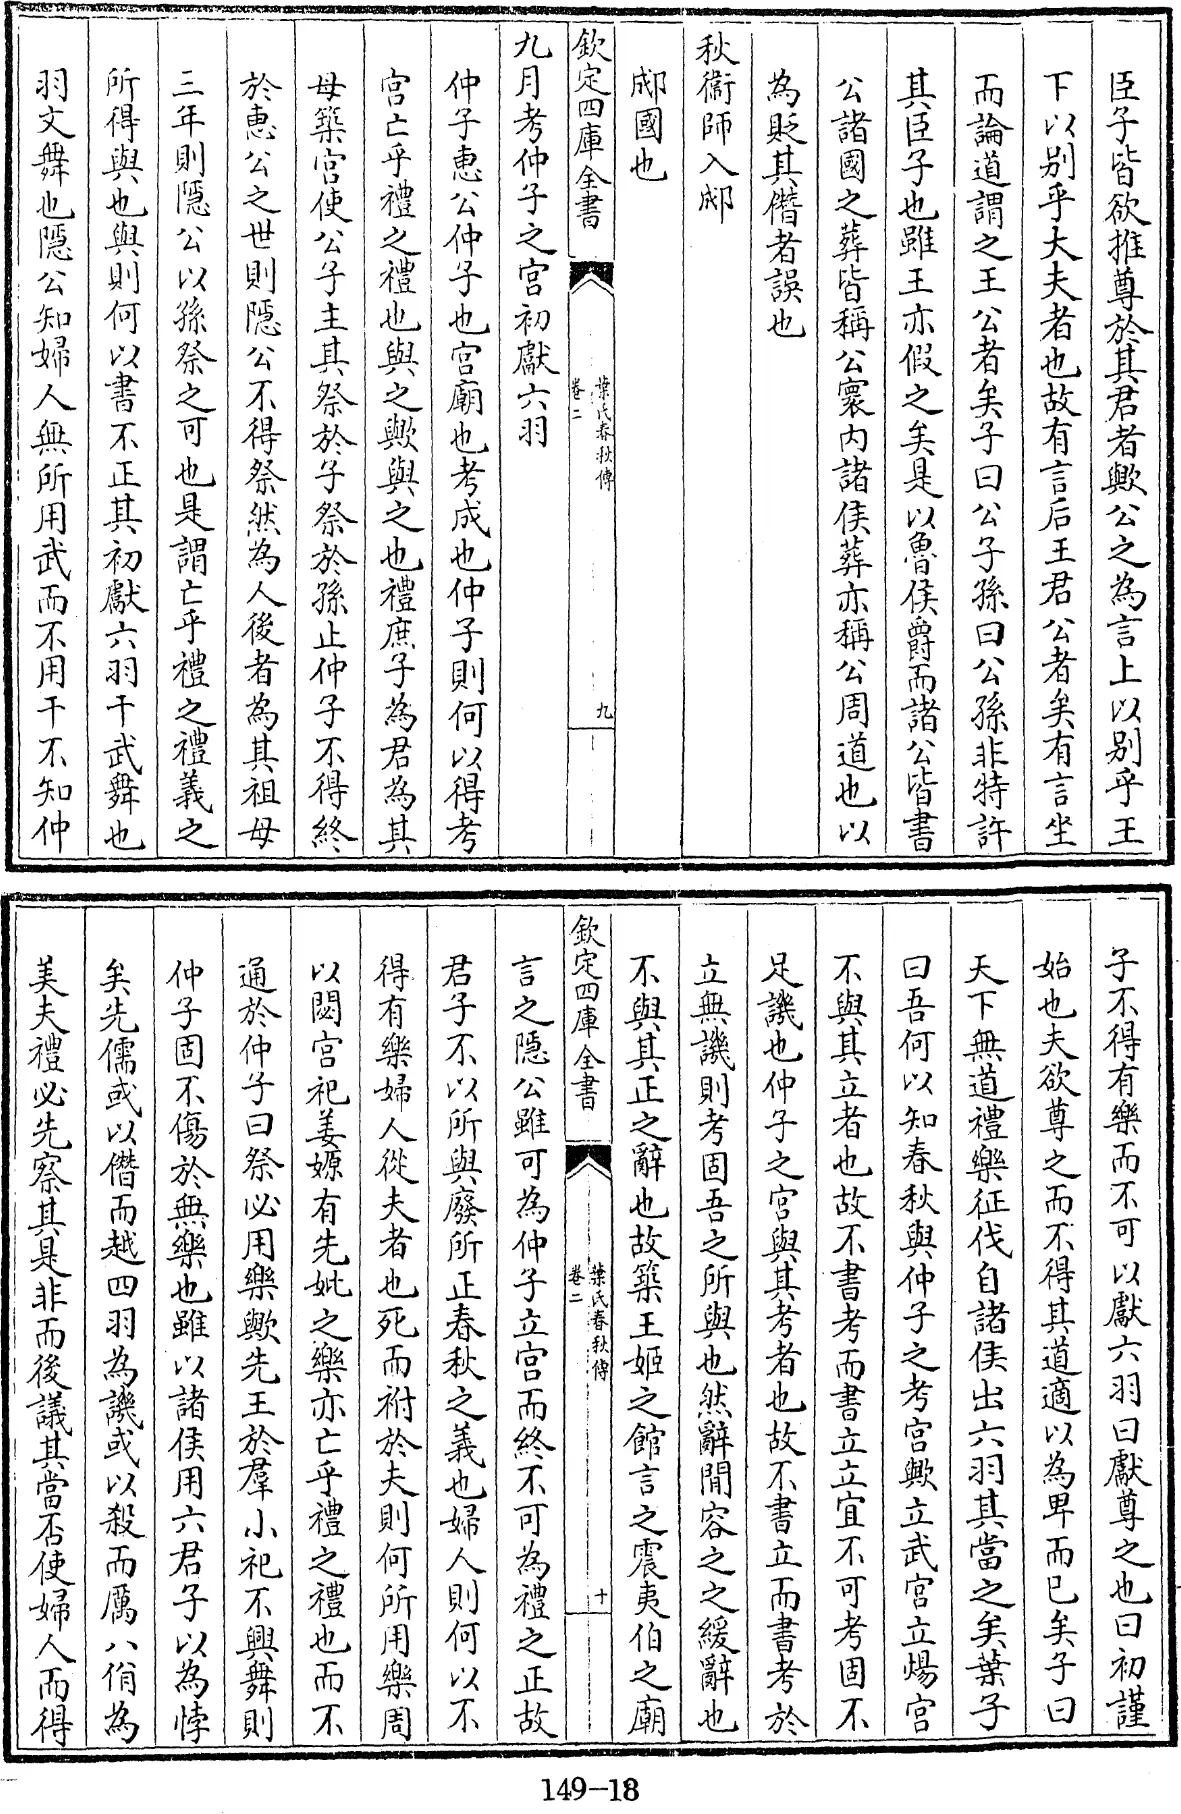 臣子皆欲推尊於其君者歟公之為言上以别乎王
下以别乎大夫者也故有言后王君公者矣有言坐
而論道謂之王公者矣子曰公子孫曰公孫非特許
其臣子也雖王亦假之矣是以魯侯爵而諸公皆書
公諸國之葬皆稱公寰内諸侯葬亦稱公周道也以
為貶其僭者誤也
秋衞師入郕
郕國也
欽定四庫全書
葉氏春秋傳
卷二
九
九月考仲子之宫初獻六羽
仲子惠公仲子也宫廟也考成也仲子則何以得考
宫亡乎禮之禮也與之歟與之也禮庶子為君為其
母築宫使公子主其祭於子祭於孫止仲子不得終
於惠公之世則隱公不得祭然為人後者為其祖母
三年則隱公以孫祭之可也是謂亡乎禮之禮義之
所得與也與則何以書不正其初獻六羽干武舞也
羽文舞也隱公知婦人無所用武而不用干不知仲
子不得有樂而不可以獻六羽曰獻尊之也曰初謹
始也夫欲尊之而不得其道適以為卑而已矣子曰
天下無道禮樂征伐自諸侯出六羽其當之矣葉子
曰吾何以知春秋與仲子之考宫歟立武宫立煬宫
不與其立者也故不書考而書立立宜不可考固不
足譏也仲子之宫與其考者也故不書立而書考於
立無譏則考固吾之所與也然辭間容之之緩辭也
不與其正之辭也故築王姬之館言之震夷伯之廟
欽定四庫全書
葉氏春秋傳
卷二
十
言之隱公雖可為仲子立宫而終不可為禮之正故
君子不以所與廢所正春秋之義也婦人則何以不
得有樂婦人從夫者也死而祔於夫則何所用樂周
以閟宫祀姜嫄有先妣之樂亦亡乎禮之禮也而不
通於仲子曰祭必用樂歟先王於羣小祀不興舞則
仲子固不傷於無樂也雖以諸侯用六君子以為悖
矣先儒或以僭而越四羽為譏或以殺而厲八佾為
美夫禮必先察其是非而後議其當否使婦人而得
149-18